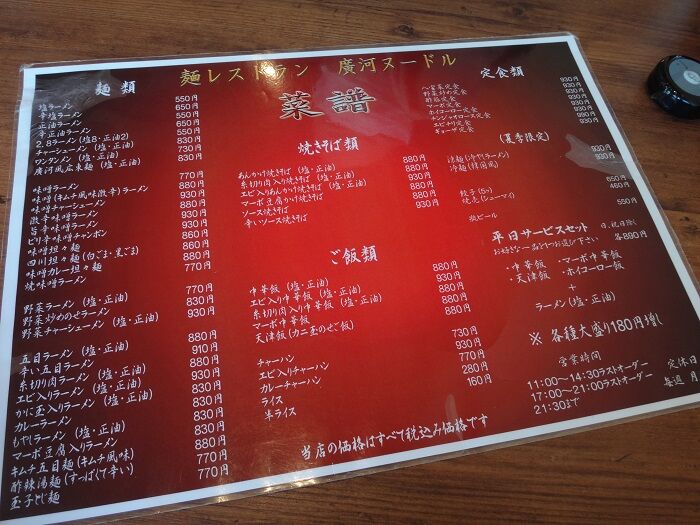 麺レストラン 廣河ヌードル
菜譜
麺類
塩ラーメン 550円
辛塩ラーメン 650円
正油ラーメン 550円
辛正油ラーメン 650円
2.8ラーメン(塩・正油2) 730円
チャーシューメン(塩・正油) 830円
ワンタンメン(塩・正油) 830円
廣河風広東麺(塩・正油)
味噌ラーメン 770円
味噌(キムチ風味激辛)ラーメン 880円
味噌チャーシューメン 930円
激辛味噌ラーメン 880円
旨辛味噌ラーメン 880円
ピリ辛味噌チャンポン 930円
味噌坦々麺 880円
四川坦々麺(白ごま・黒ごま) 880円
味噌カレー坦々麺
焼味噌ラーメン 770円
野菜ラーメン(塩・正油) 770円
野菜炒めのせラーメン 830円
野菜チャーシューメン(塩・正油) 930円
五目ラーメン(塩・正油) 880円
辛い五目ラーメン 910円
糸切り肉ラーメン(塩・正油) 880円
エビ入りラーメン(塩・正油)
かに玉入りラーメン(塩・正油)
カレーラーメン
もやしラーメン(塩・正油)
マーボ豆腐入りラーメン
キムチ五目麺(キムチ風味)
酢辣湯麺(すっぱくて辛い) 770円
玉子とじ麺 770円
焼きそば類
あんかけ焼きそば(塩・正油) 880円
糸切り肉入り焼きそば(塩・正油) 880円
エビ入りあんかけ焼きそば(塩・正油) 930円
マーボ豆腐かけ焼きそば
ソース焼きそば
辛いソース焼きそば
ご飯類
中華飯(塩・正油) 880円
エビ入り中華飯(塩・正油) 930円
糸切り肉入り中華飯(塩・正油)
マーボ中華飯
天津飯(カニ玉のせご飯)
チャーハン 730円
エビ入りチャーハン 930円
カレーチャーハン 770円
ライス 280円
半ライス 160円
定食類
八宝菜定食 930円
野菜炒め定食
酢豚定食
マーボ定食
ホイコーロー定食
チンジャオロース定食
エビチリ定食
ギョーザ定食
(夏季限定)
涼麺(冷やラーメン) 930円
冷麺(韓国風) 930円
餃子(5ヶ) 650円
焼売(シューマイ) 460円
瓶ビール 550円
平日サービスセット 日、祝日除く
お好きな一品ずつお選び下さい 各890円
・中華飯 ・マーボ中華飯
・天津飯 ・ホイコーロー飯
+
ラーメン(塩・正油)
※ 各種大盛り180円増し
営業時間
11:00〜14:30ラストオーダー
17:00〜21:00ラストオーダー
21:30まで
定休日
毎週 月
当店の価格はすべて税込み価格です